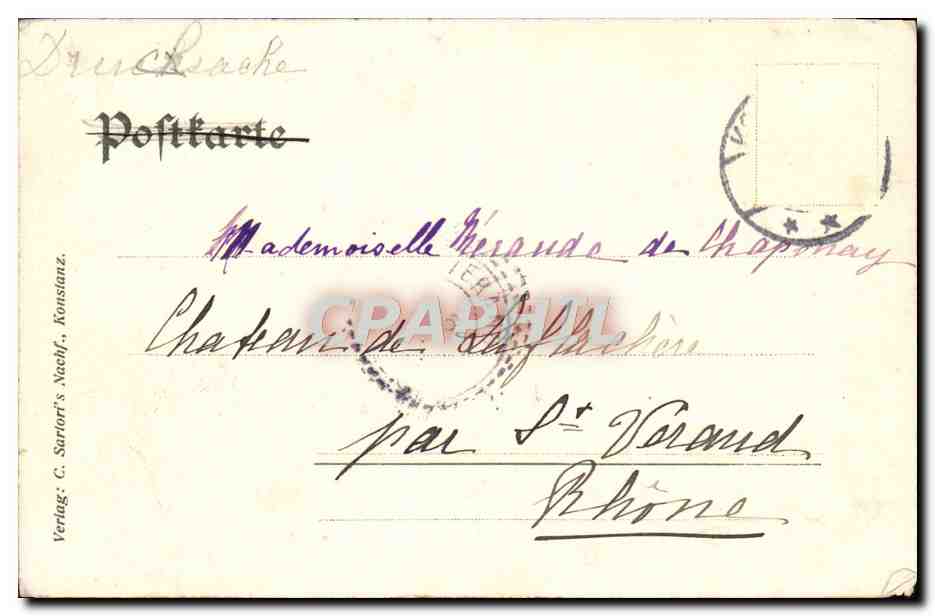 Drucksache
Postkarte
Mademoiselle de Chaponay
CPARPHIL
Chateau de la Flachère
par St Vérand
Rhône
Verlag: C. Sartori's Nachf., Konstanz.